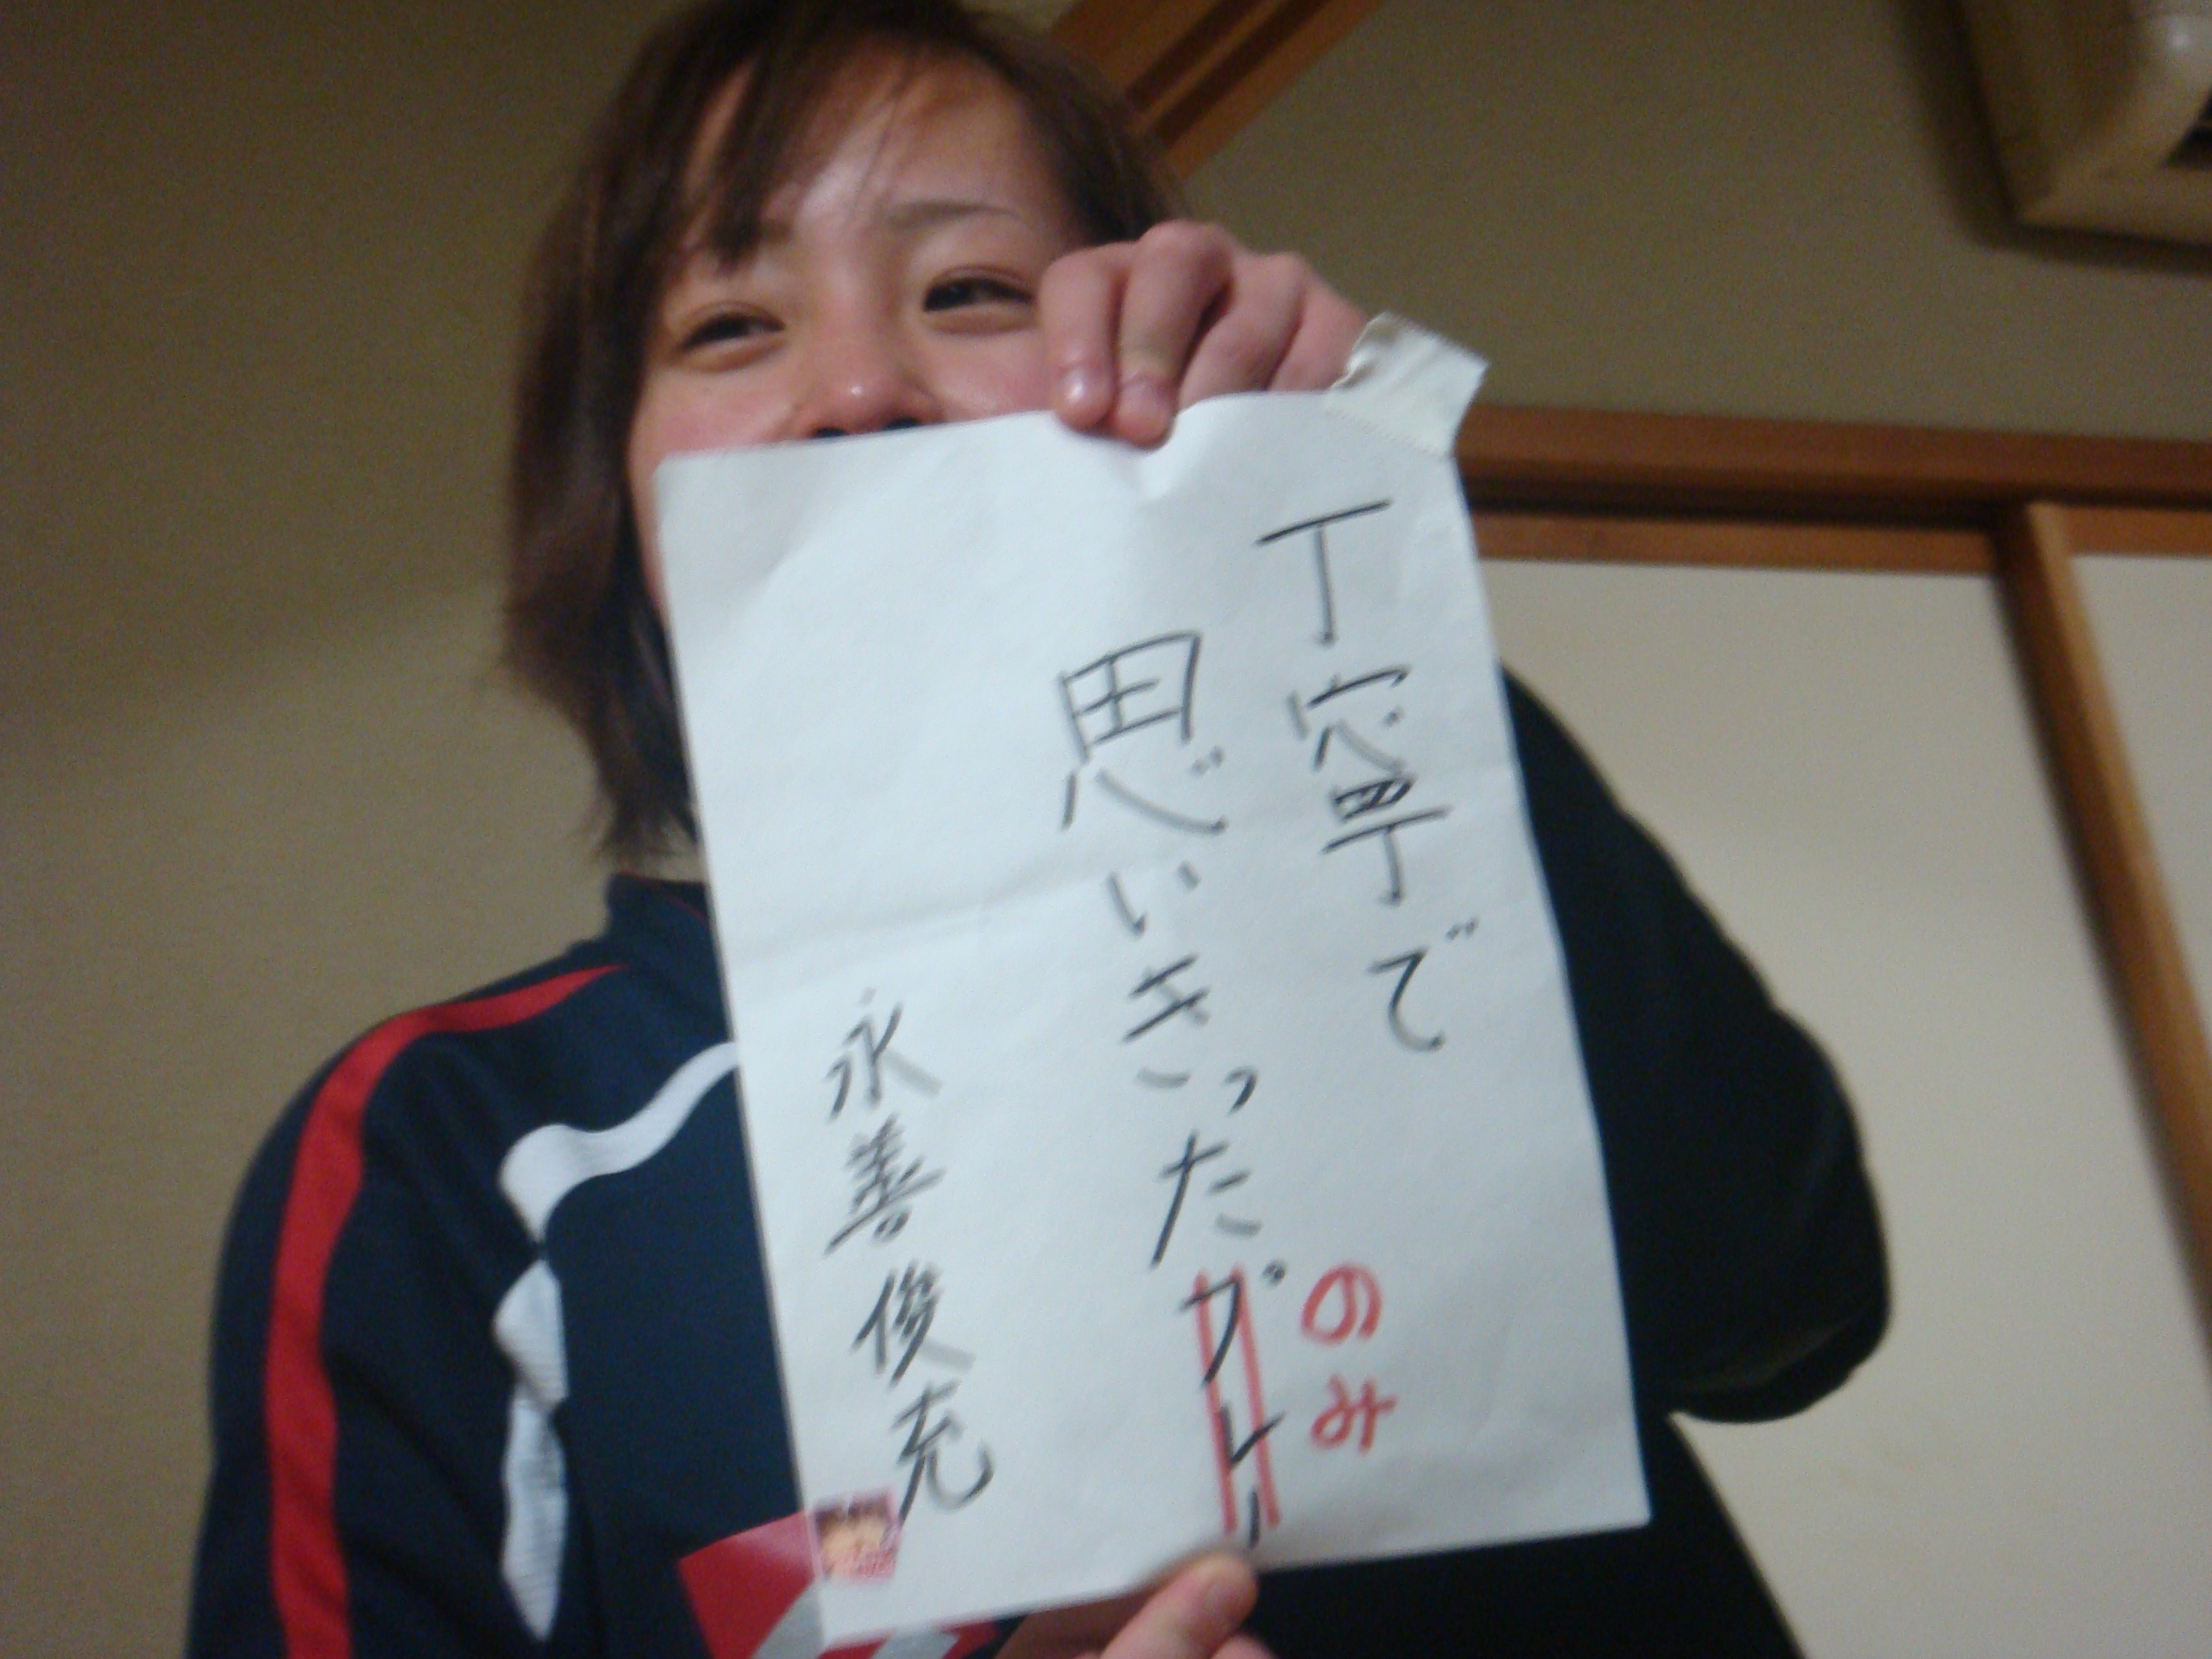 丁寧で
思いきったプレー
のみ
永善俊充